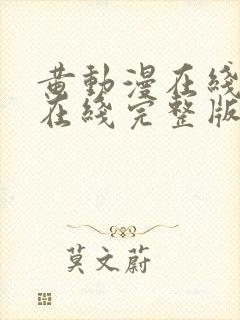 黄動漫在綫
在綫完整版
莫文蔚